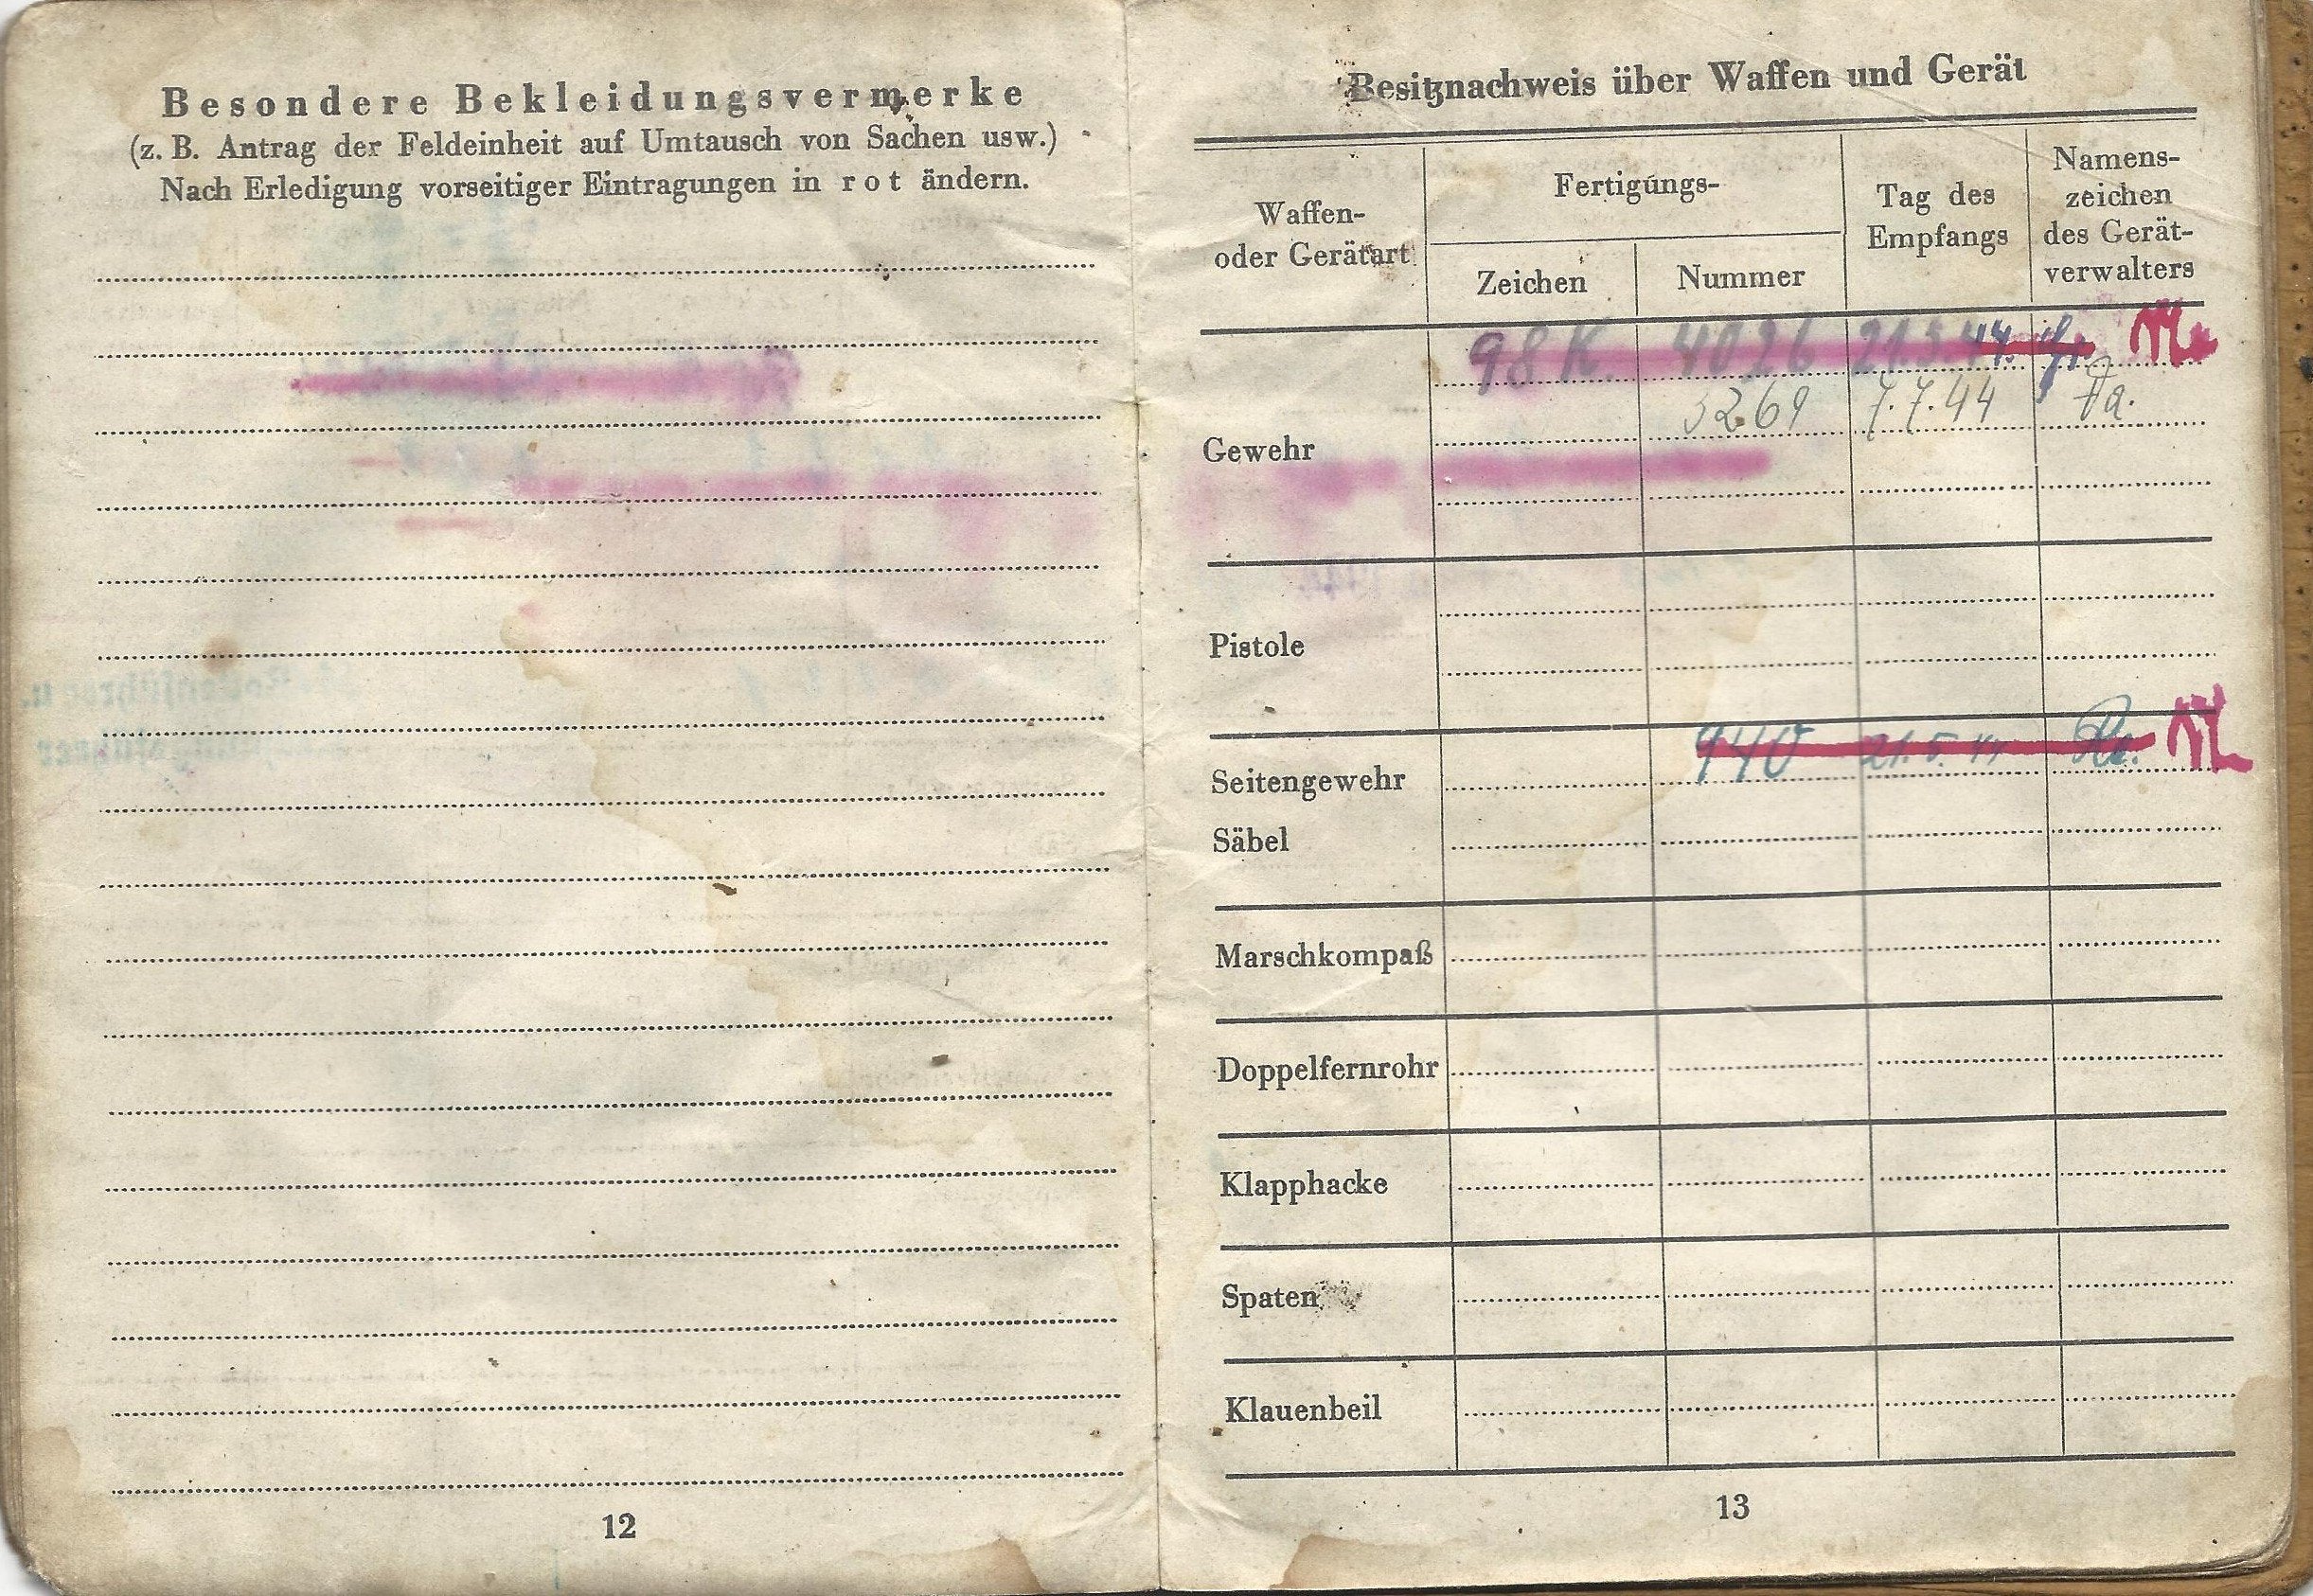 Besondere Bekleidungsvermerke
(z. B. Antrag der Feldeinheit auf Umtausch von Sachen usw.)
Nach Erledigung vorseitiger Eintragungen in rot ändern.
12
Besitznachweis über Waffen und Gerät
Waffen-
oder Gerätart
Fertigungs-
Zeichen
Nummer
Tag des
Empfangs
Namens-
zeichen
des Gerät-
verwalters
98 K. 4026 21.5.44.
Gewehr
3269 7.7.44
Pistole
Seitengewehr
940 21.5.44
Säbel
Marschkompaß
Doppelfernrohr
Klapphacke
Spaten
Klauenbeil
13